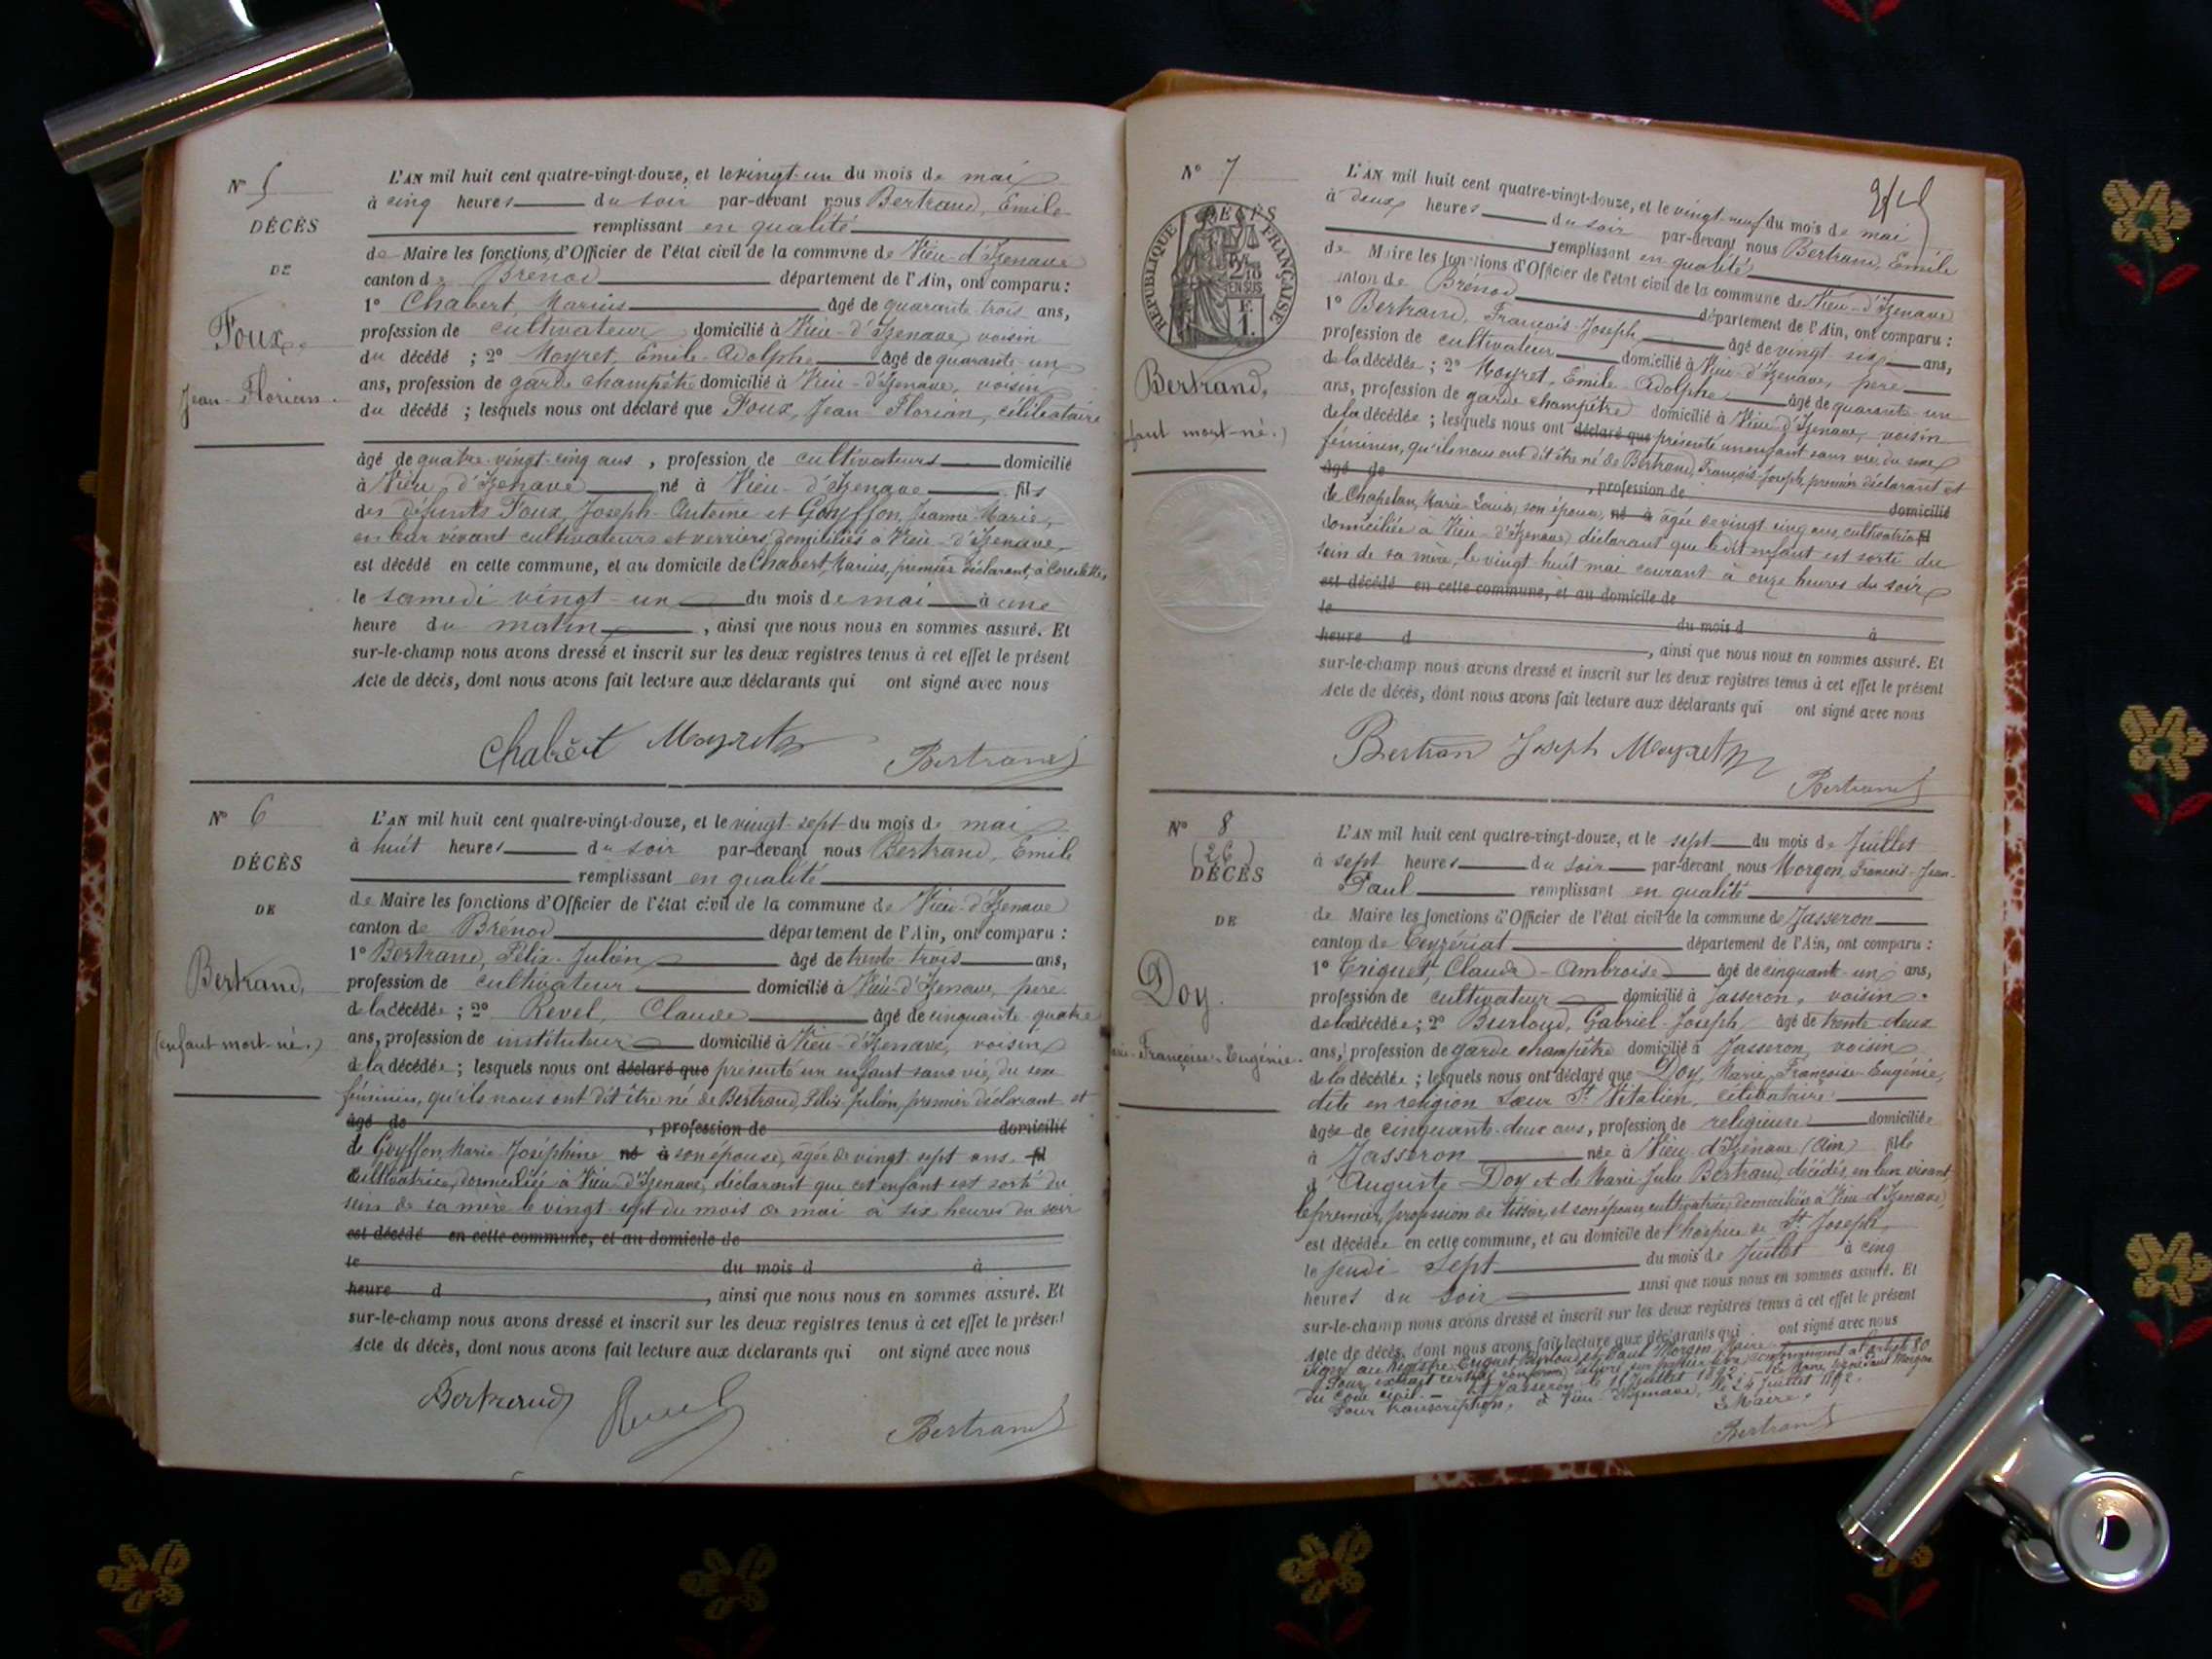 N° 5
DÉCÈS
DE
Foux
Jean-Florian.
L'AN mil huit cent quatre-vingt-douze, et le vingt-un du mois de mai
à cinq heures du soir par-devant nous Bertrand, Emile
remplissant en qualité
de Maire les fonctions d'Officier de l'état civil de la commune de Vieu-d'Izenave
canton de Brénod département de l'Ain, ont comparu :
1° Chabert, Marius âgé de quarante-trois ans,
profession de cultivateur domicilié à Vieu-d'Izenave, voisin
du décédé ; 2° Moyret, Emile-Adolphe âgé de quarante-un
ans, profession de garde champêtre domicilié à Vieu-d'Izenave, voisin
du décédé ; lesquels nous ont déclaré que Foux, Jean-Florian, célibataire
âgé de quatre-vingt-cinq ans, profession de cultivateurs domicilié
à Vieu-d'Izenave né à Vieu-d'Izenave fils
des défunts Foux, Joseph-Antoine et Goyffon, Jeanne-Marie,
en leur vivant cultivateurs et verriers, domiciliés à Vieu-d'Izenave,
est décédé en cette commune, et au domicile de Chabert, Marius, premier déclarant, à
le samedi vingt-un du mois de mai à une
heure du matin, ainsi que nous nous en sommes assuré. Et
sur-le-champ nous avons dressé et inscrit sur les deux registres tenus à cet effet le présent
Acte de décès, dont nous avons fait lecture aux déclarants qui ont signé avec nous
Chabert Moyret
Bertrand
N° 6
DÉCÈS
DE
Bertrand,
(enfant mort-né.)
L'AN mil huit cent quatre-vingt-douze, et le vingt-sept du mois de mai
à huit heures du soir par-devant nous Bertrand, Emile
remplissant en qualité
de Maire les fonctions d'Officier de l'état civil de la commune de Vieu-d'Izenave
canton de Brénod département de l'Ain, ont comparu :
1° Bertrand, Félix-Julien âgé de trente-trois ans,
profession de cultivateur domicilié à Vieu-d'Izenave, père
de la décédée ; 2° Revel, Claude âgé de cinquante-quatre
ans, profession de instituteur domicilié à Vieu-d'Izenave, voisin
de la décédée ; lesquels nous ont déclaré que présenté un enfant sans vie, du sexe
féminin, qu'ils nous ont dit être né de Bertrand, Félix-Julien, premier déclarant et
âgé de , profession de domicilié
de Goyffon, Marie-Joséphine né à son épouse, âgée de vingt-sept ans fil
cultivatrice, domiciliée à Vieu-d'Izenave, déclarant que cet enfant est sorti du
sein de sa mère le vingt-sept du mois de mai à six heures du soir
est décédé en cette commune, et au domicile de
le du mois d à
heure d , ainsi que nous nous en sommes assuré. Et
sur-le-champ nous avons dressé et inscrit sur les deux registres tenus à cet effet le présent
Acte de décès, dont nous avons fait lecture aux déclarants qui ont signé avec nous
Bertrand Revel
Bertrand
N° 7
DÉCÈS
RÉPUBLIQUE FRANÇAISE
2/10
EN SUS
F.
1.
Bertrand,
enfant mort-né.)
L'AN mil huit cent quatre-vingt-douze, et le vingt-neuf du mois de mai
à deux heures du soir par-devant nous Bertrand, Emile
remplissant en qualité
de Maire les fonctions d'Officier de l'état civil de la commune de Vieu-d'Izenave
canton de Brénod département de l'Ain, ont comparu :
1° Bertrand, François-Joseph âgé de vingt-six ans,
profession de cultivateur domicilié à Vieu-d'Izenave, père
de la décédée ; 2° Moyret, Emile-Adolphe âgé de quarante-un
ans, profession de garde champêtre domicilié à Vieu-d'Izenave, voisin
de la décédée ; lesquels nous ont déclaré que présenté un enfant sans vie, du sexe
féminin, qu'ils nous ont dit être né de Bertrand, François-Joseph, premier déclarant et
âgé de , profession de domicilié
de Chapelan, Marie-Louise, son épouse, né à âgée de vingt-cinq ans, cultivatrice fil
domiciliée à Vieu-d'Izenave, déclarant que le dit enfant est sorti du
sein de sa mère, le vingt-huit mai courant à onze heures du soir
est décédé en cette commune, et au domicile de
le du mois d à
heure d , ainsi que nous nous en sommes assuré. Et
sur-le-champ nous avons dressé et inscrit sur les deux registres tenus à cet effet le présent
Acte de décès, dont nous avons fait lecture aux déclarants qui ont signé avec nous
Bertran Joseph Moyret
Bertrand
N° 8
(26)
DÉCÈS
DE
Doy.
Françoise-Eugénie.
L'AN mil huit cent quatre-vingt-douze, et le sept du mois de Juillet
à sept heures du soir par-devant nous Morgon, François-Jean-
Paul remplissant en qualité
de Maire les fonctions d'Officier de l'état civil de la commune de Jasseron
canton de Ceyzériat département de l'Ain, ont comparu :
1° Triquet, Claude-Ambroise âgé de cinquante-un ans,
profession de cultivateur domicilié à Jasseron, voisin
de la décédée ; 2° Burloud, Gabriel-Joseph, âgé de trente-deux
ans, profession de garde champêtre domicilié à Jasseron, voisin
de la décédée ; lesquels nous ont déclaré que Doy, Marie-Françoise-Eugénie,
dite en religion Sœur St Vitalien, célibataire
âgée de cinquante-deux ans, profession de religieuse domiciliée
à Jasseron née à Vieu-d'Izénave (Ain) fille
d'Auguste Doy et de Marie Julie Bertrand, décédés, en leur vivant,
le premier, profession de tissier, et son épouse cultivatrice, domiciliés à Vieu-d'Izenave,
est décédée en cette commune, et au domicile de l'hospice de St Joseph,
le jeudi sept du mois de Juillet à cinq
heures du soir ainsi que nous nous en sommes assuré. Et
sur-le-champ nous avons dressé et inscrit sur les deux registres tenus à cet effet le présent
Acte de décès, dont nous avons fait lecture aux déclarants qui ont signé avec nous
Signé au Registre Triquet, Burloud et Paul Morgon, Maire.
Pour extrait certifié conforme, délivré sur papier libre, conformément à l'article 80
du Code civil. – À Jasseron, le Juillet 1892. – Le Maire, Morgon
Pour transcription, à Vieu-d'Izenave, le 24 Juillet 1892.
Le Maire,
Bertrand